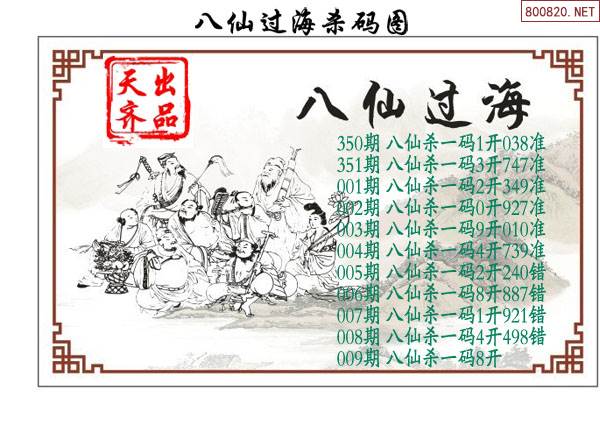 800820.NET
八仙过海杀码图
天出
齐品
八仙过海
350期 八仙杀一码1开038准
351期 八仙杀一码3开747准
001期 八仙杀一码2开349准
002期 八仙杀一码0开927准
003期 八仙杀一码9开010准
004期 八仙杀一码4开739准
005期 八仙杀一码2开240错
006期 八仙杀一码8开887错
007期 八仙杀一码1开921错
008期 八仙杀一码4开498错
009期 八仙杀一码8开